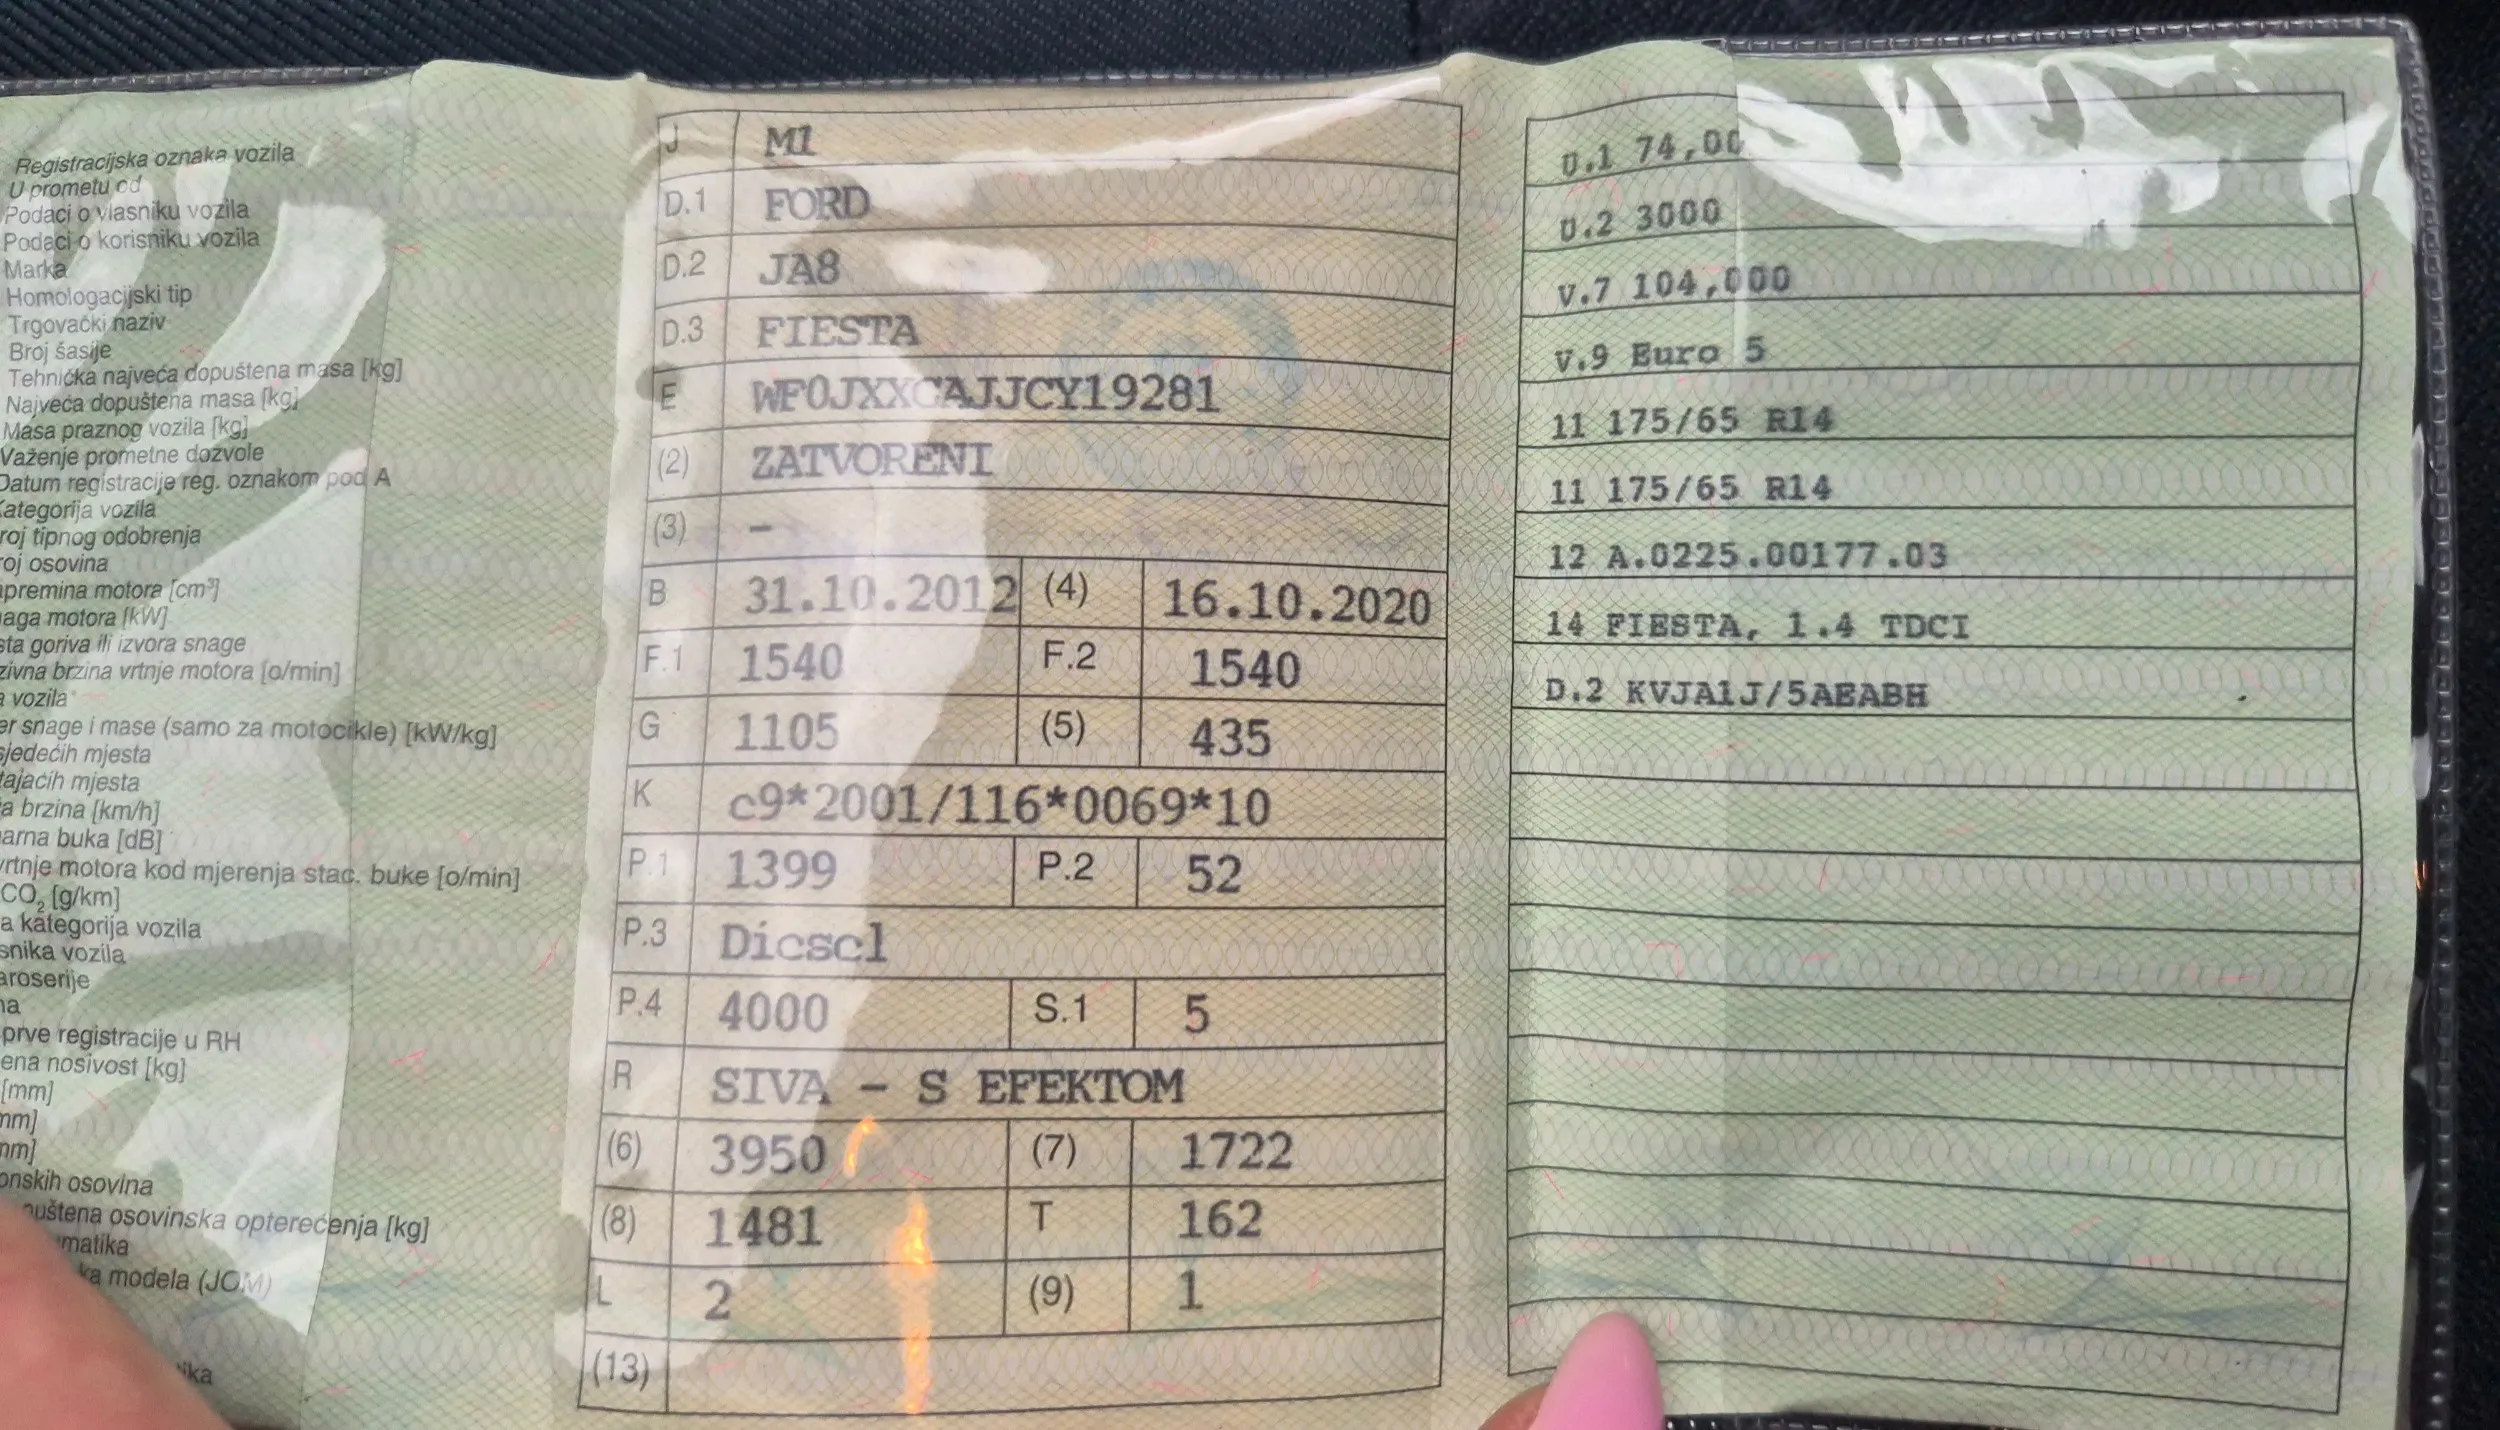 Registracijska oznaka vozila
U prometu od
Podaci o vlasniku vozila
Podaci o korisniku vozila
Marka
Homologacijski tip
Trgovački naziv
Broj šasije
Tehnička najveća dopuštena masa [kg]
Najveća dopuštena masa [kg]
Masa praznog vozila [kg]
Važenje prometne dozvole
Datum registracije reg. oznakom pod A
Kategorija vozila
roj tipnog odobrenja
roj osovina
premina motora [cm³]
aga motora [kW]
sta goriva ili izvora snage
zivna brzina vrtnje motora [o/min]
a vozila
er snage i mase (samo za motocikle) [kW/kg]
sjedećih mjesta
tajaćih mjesta
a brzina [km/h]
arna buka [dB]
vrtnje motora kod mjerenja stac. buke [o/min]
CO₂ [g/km]
a kategorija vozila
snika vozila
aroserije
na
prve registracije u RH
ena nosivost [kg]
[mm]
mm]
mm]
onskih osovina
puštena osovinska opterećenja [kg]
matika
ka modela (JOM)
ika
J M1
D.1 FORD
D.2 JA8
D.3 FIESTA
E WF0JXXGAJJCY19281
(2) ZATVORENI
(3) -
B 31.10.2012 (4) 16.10.2020
F.1 1540 F.2 1540
G 1105 (5) 435
K e9*2001/116*0069*10
P.1 1399 P.2 52
P.3 Diesel
P.4 4000 S.1 5
R SIVA - S EFEKTOM
(6) 3950 (7) 1722
(8) 1481 T 162
L 2 (9) 1
(13)
U.1 74,00
U.2 3000
V.7 104,000
V.9 Euro 5
11 175/65 R14
11 175/65 R14
12 A.0225.00177.03
14 FIESTA, 1.4 TDCI
D.2 KVJA1J/5AEABH